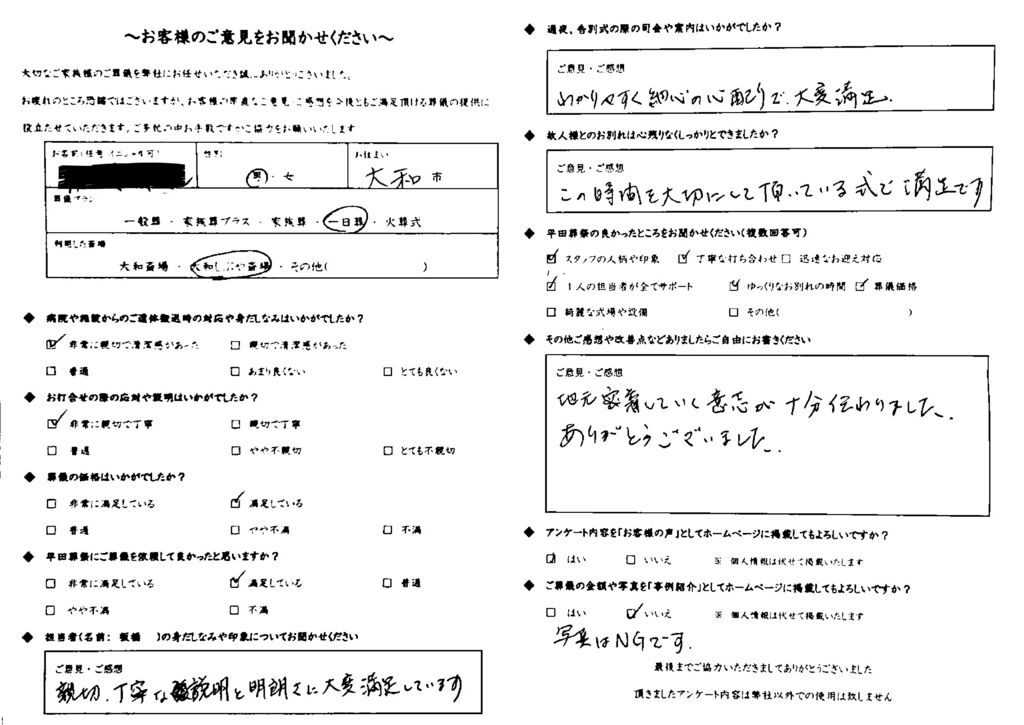 ～お客様のご意見をお聞かせください～
大切なご家族様のご葬儀を弊社にお任せいただき誠にありがとうございました。
お疲れのところ恐縮ではございますが、お客様の率直なご意見・ご感想を今後ともご満足頂ける葬儀の提供に
役立たせていただきます。ご多忙の中お手数ですがご協力をお願いいたします
お名前(任意 イニシャル可) 性別 お住まい
男・女 大和 市
葬儀プラン
一般葬 ・ 家族葬プラス ・ 家族葬 ・ 一日葬 ・ 火葬式
利用した斎場
大和斎場 ・ 大和しぶや斎場 ・ その他( )
◆ 病院や施設からのご遺体搬送時の対応や身だしなみはいかがでしたか？
☑ 非常に親切で清潔感があった □ 親切で清潔感があった
□ 普通 □ あまり良くない □ とても良くない
◆ お打合せの際の応対や説明はいかがでしたか？
☑ 非常に親切で丁寧 □ 親切で丁寧
□ 普通 □ やや不親切 □ とても不親切
◆ 葬儀の価格はいかがでしたか？
□ 非常に満足している ☑ 満足している
□ 普通 □ やや不満 □ 不満
◆ 平田葬祭にご葬儀を依頼して良かったと思いますか？
□ 非常に満足している ☑ 満足している □ 普通
□ やや不満 □ 不満
◆ 担当者(名前: 板橋 )の身だしなみや印象についてお聞かせください
ご意見・ご感想
親切、丁寧な説明と明朗さに大変満足しています
◆ 通夜、告別式の際の司会や案内はいかがでしたか？
ご意見・ご感想
わかりやすく細心の心配りで、大変満足。
◆ 故人様とのお別れは心残りなくしっかりとできましたか？
ご意見・ご感想
この時間を大切にして頂いている式で満足です
◆ 平田葬祭の良かったところをお聞かせください(複数回答可)
☑ スタッフの人柄や印象 ☑ 丁寧な打ち合わせ □ 迅速なお迎え対応
☑ 1人の担当者が全てサポート ☑ ゆっくりなお別れの時間 ☑ 葬儀価格
□ 綺麗な式場や設備 □ その他( )
◆ その他ご感想や改善点などありましたらご自由にお書きください
ご意見・ご感想
地元密着していく意志が十分伝わりました。
ありがとうございました。
◆ アンケート内容を「お客様の声」としてホームページに掲載してもよろしいですか？
☑ はい □ いいえ ※ 個人情報は伏せて掲載いたします
◆ ご葬儀の金額や写真を「事例紹介」としてホームページに掲載してもよろしいですか？
□ はい ☑ いいえ ※ 個人情報は伏せて掲載いたします
写真はNGです.
最後までご協力いただきましてありがとうございました
頂きましたアンケート内容は弊社以外での使用は致しません